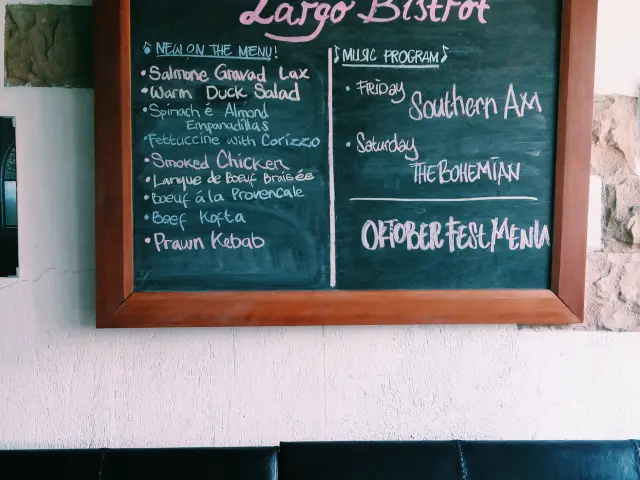 Largo Bistrot
NEW ON THE MENU!
• Salmone Gravad Lax
• Warm Duck Salad
• Spinach é Almond
Empanadillas
• Fettuccine with Corizzo
• Smoked Chicken
• Langue de Boeuf Braisée
• Boeuf á la Provencale
• Beef Kofta
• Prawn Kebab
♪ MUSIC PROGRAM ♪
• FRIDAY
Southern AM
• Saturday
THE BOHEMIAN
OKTOBERFEST MENU